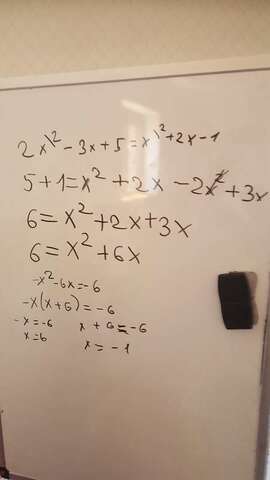 2x² - 3x + 5 = x² + 2x - 1
5 + 1 = x² + 2x - 2x² + 3x
6 = x² + 2x + 3x
6 = x² + 6x
-x² - 6x = -6
-x(x + 6) = -6
-x = -6 x + 6 = -6
x = 6 x = -1